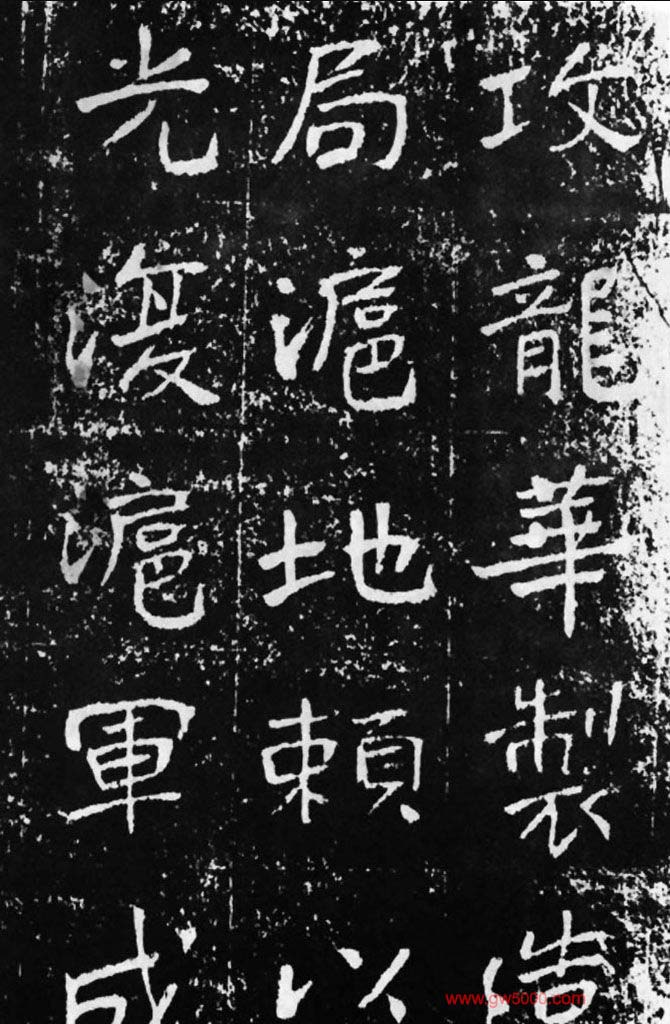 攻龍華製造
局滬地賴以
光復滬軍成
www.gw5000.com